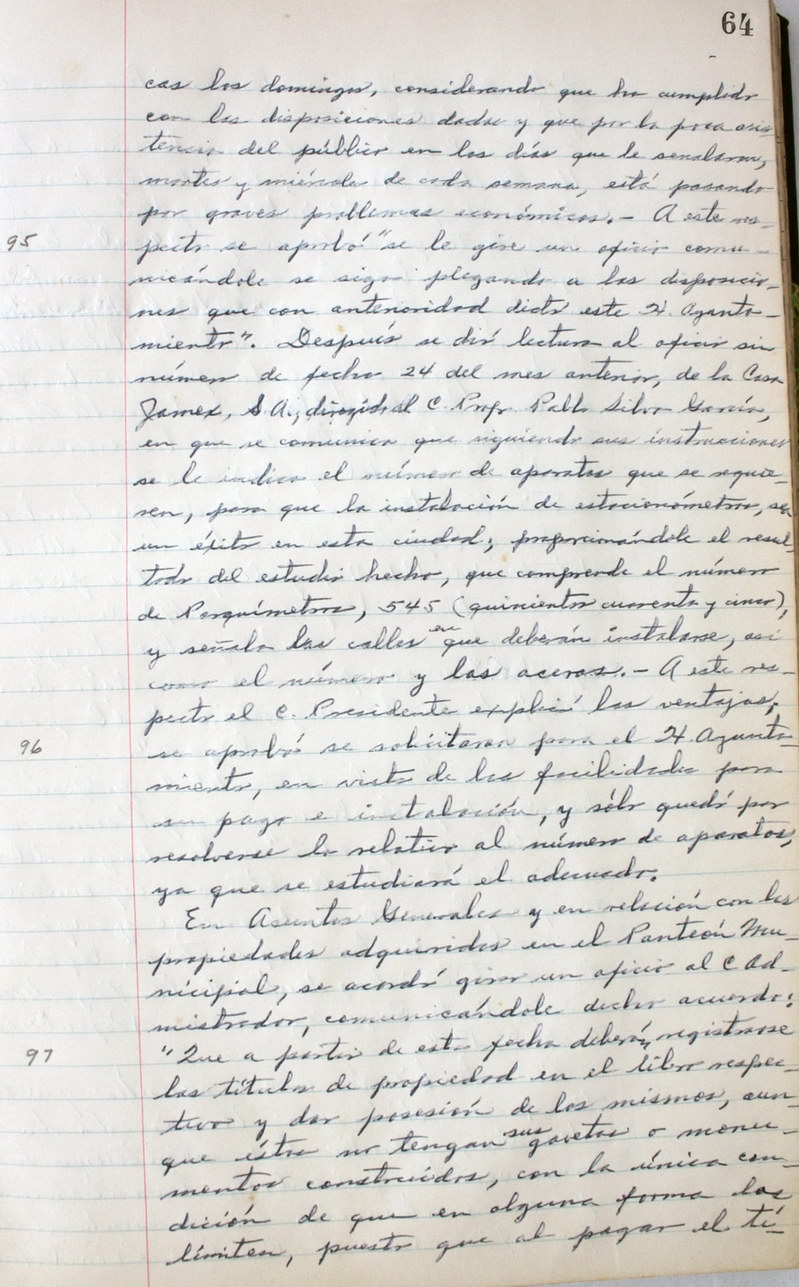 64
cas los domingos, considerando que ha cumplido
con las disposiciones dadas y que por la poca asis-
tencia del público en los días que le señalaron,
martes y miércoles de cada semana, está pasando
por graves problemas económicos.- A este res-
95 pecto se aprobó "se le gire un oficio comu-
nicándole se siga plegando a las disposicio-
nes que con anterioridad dictó este H. Ayunta-
miento". Después se dió lectura al oficio sin
número de fecha 24 del mes anterior, de la Casa
Jamex, S.A., dirigido al C. Profr. Pablo Silva García,
en que se comunica que siguiendo sus instrucciones
se le indica el número de aparatos que se requie-
ren, para que la instalación de estacionómetros, sea
un éxito en esta ciudad; proporcionándole el resul-
tado del estudio hecho, que comprende el número
de Parquímetros, 545 (quinientos cuarenta y cinco),
y señala las calles en que deberán instalarse, así
como el número y las aceras.- A este res-
pecto el C. Presidente explicó las ventajas;
96 se aprobó se solicitaran para el H. Ayunta-
miento, en vista de las facilidades para
su pago e instalación, y sólo quedó por
resolverse lo relativo al número de aparatos,
ya que se estudiará el adecuado.
En Asuntos Generales y en relación con las
propiedades adquiridas en el Panteón Mu-
nicipal, se acordó girar un oficio al C. Ad-
mistrador, comunicándole dicho acuerdo:
97 "Que a partir de esta fecha deberán registrarse
los títulos de propiedad en el libro respec-
tivo y dar posesión de los mismos, aun-
que éstos no tengan sus gavetas o monu-
mentos construídos, con la única con-
dición de que en alguna forma los
limiten, puesto que al pagar el tí-